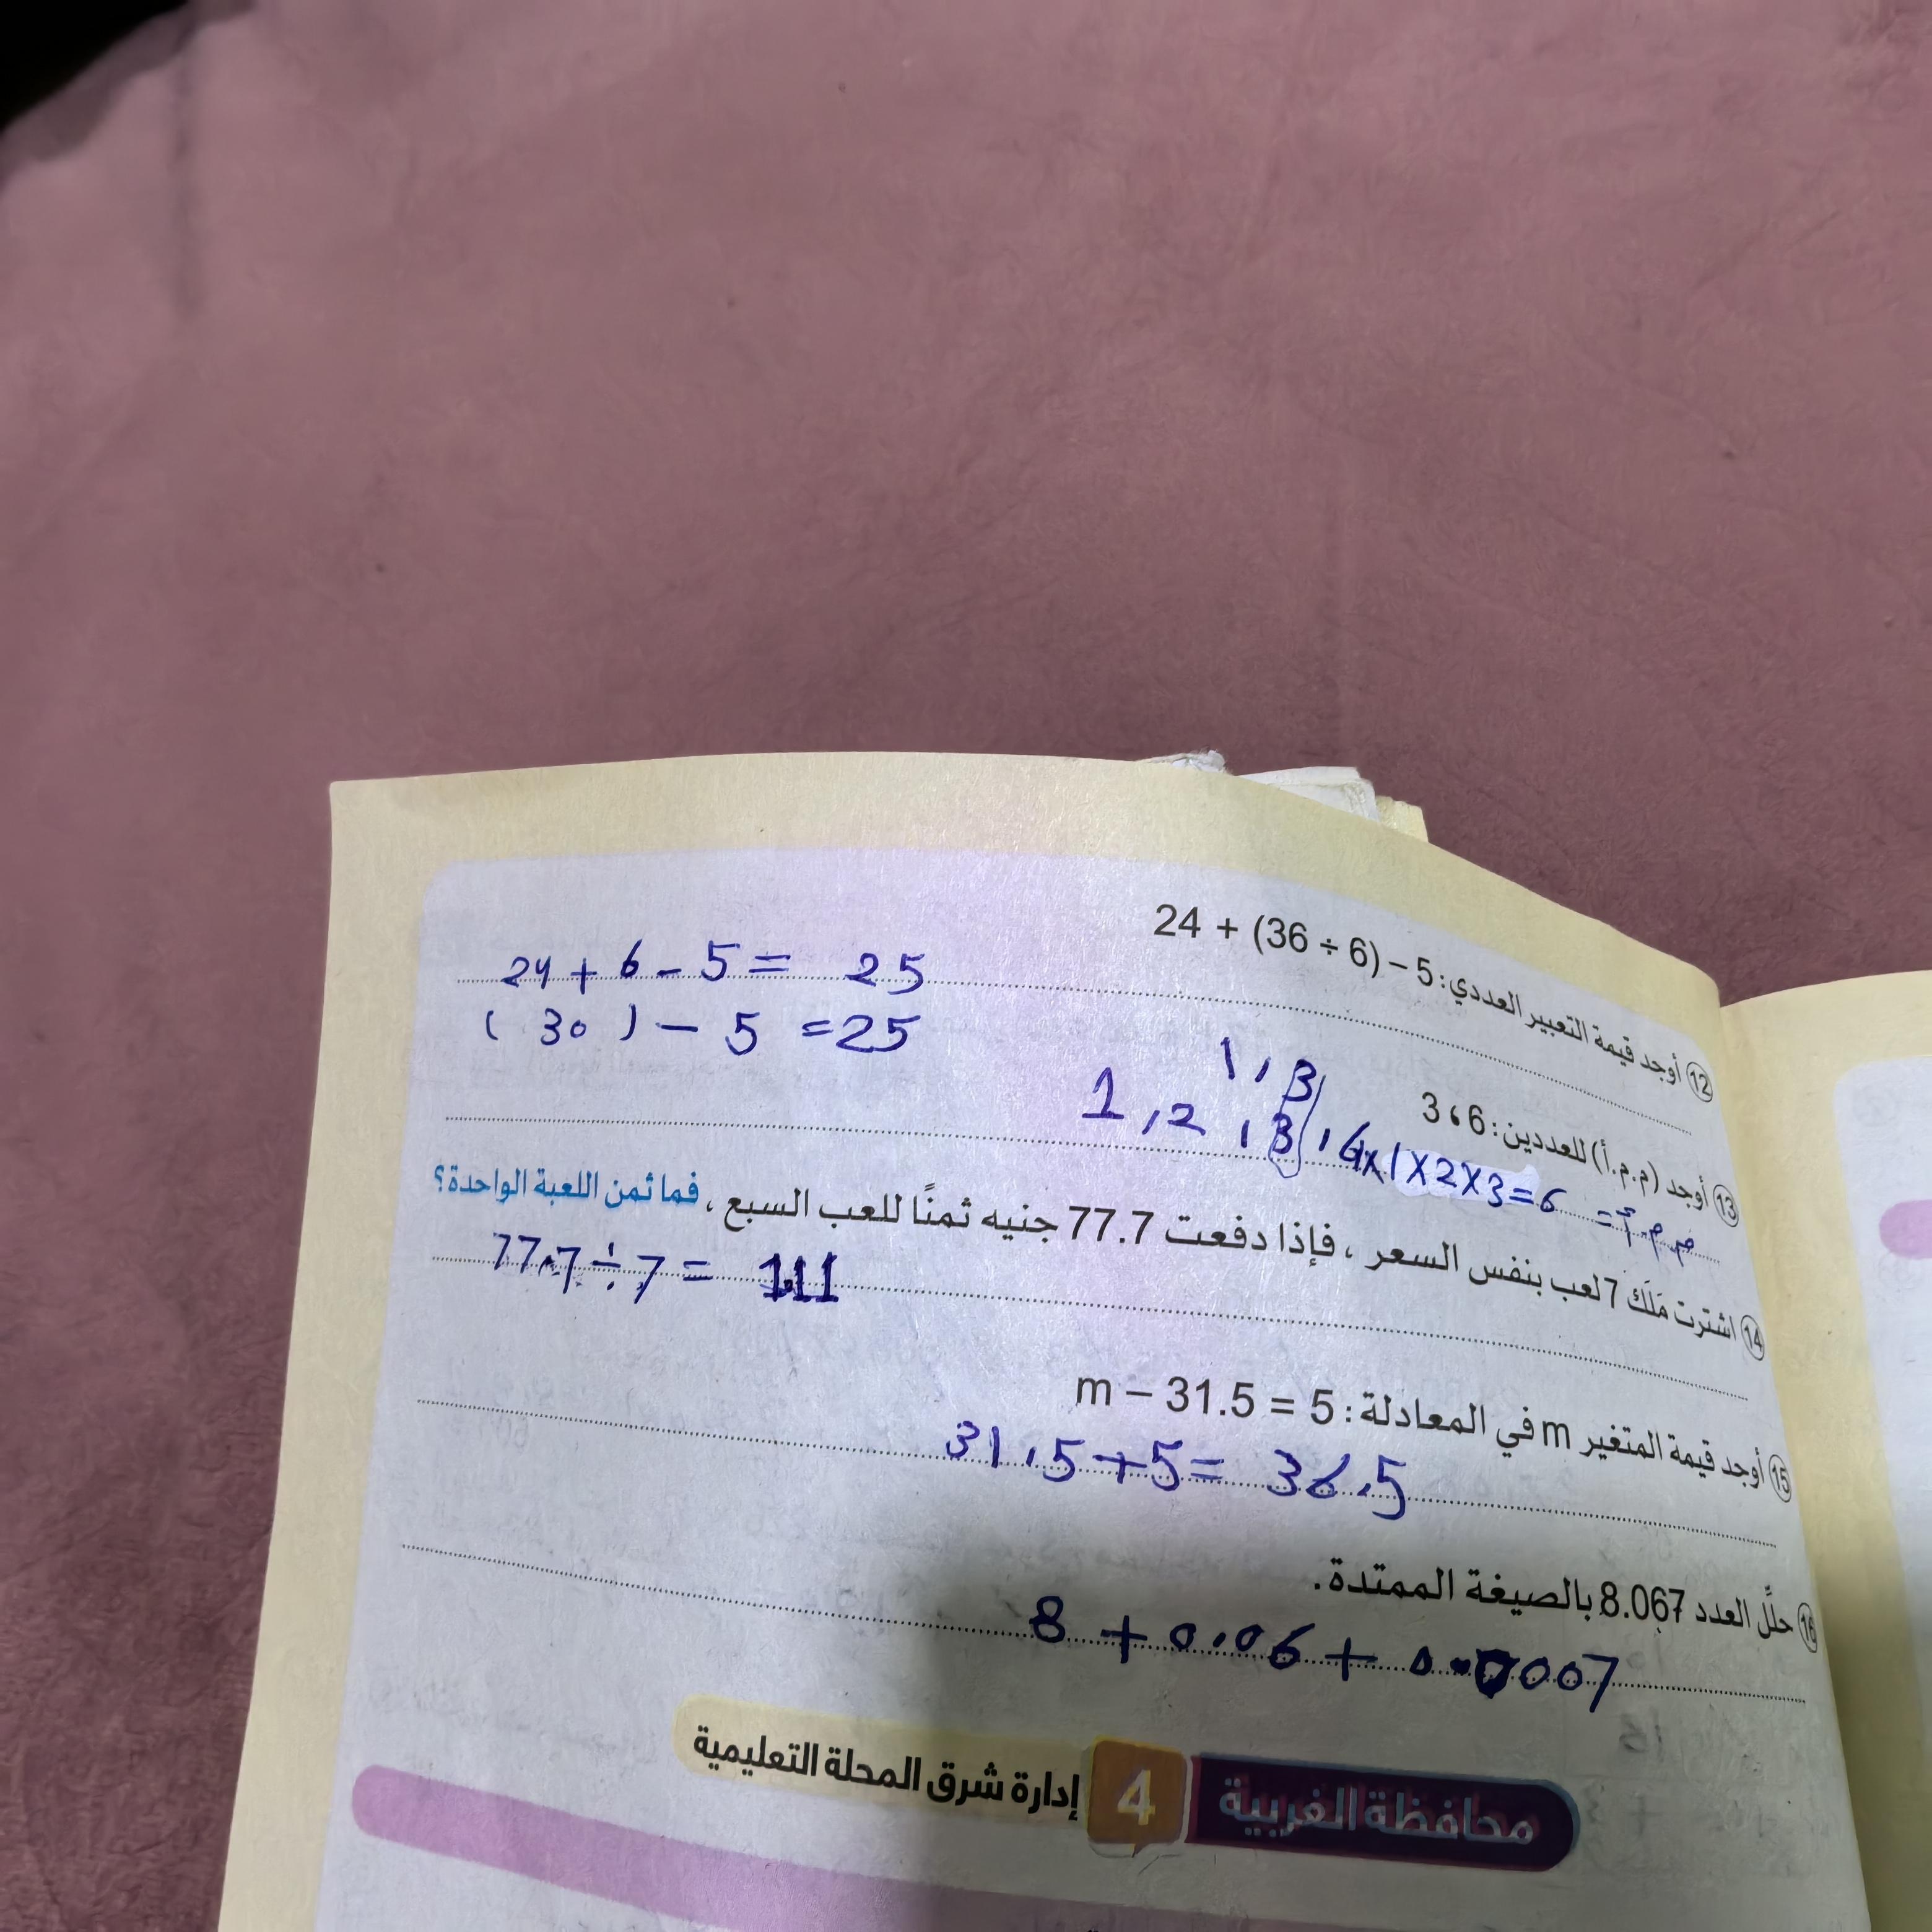 12 أوجد قيمة التعبير العددي: 24 + (36 ÷ 6) – 5
24 + 6 - 5 = 25
( 30 ) - 5 = 25
13 أوجد (م.م.أ) للعددين: 6 ، 3
1 , 3
1 , 2 , 3 , 6
×1×2×3=6
م.م.أ =
14 اشترت مَلَك 7 لعب بنفس السعر ، فإذا دفعت 77.7 جنيه ثمنًا للعب السبع ، فما ثمن اللعبة الواحدة؟
77.7 ÷ 7 = 11.1
15 أوجد قيمة المتغير m في المعادلة: m – 31.5 = 5
31.5 + 5 = 36.5
16 حلِّل العدد 8.067 بالصيغة الممتدة.
8 + 0.06 + 0.007
محافظة الغربية 4 إدارة شرق المحلة التعليمية